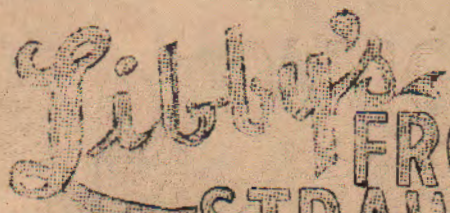 Libby's
FRO
STRAW